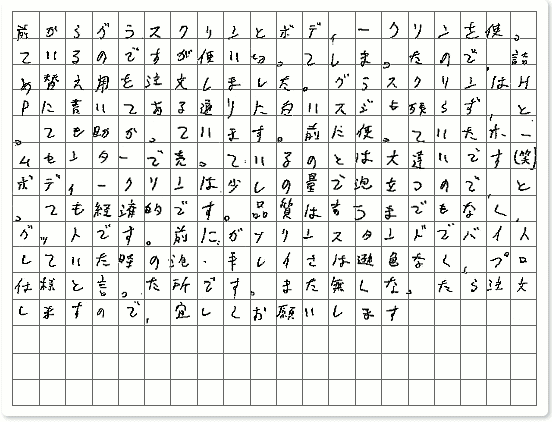 前からグラスクリンとボディークリンを使っ
ているのですが使いきってしまったので、詰
め替え用を注文しました。グラスクリンはH
Pに書いてある通りに白いスジも残らず、と
っても助かっています。前に使っていたホー
ムセンターで売っているのとは大違いです(笑)
ボディークリンは少しの量で泡立つので、と
っても経済的です。品質は言うまでもなく、
グットです。前にガソリンスタンドでバイト
していた時の泡・手しさは遜色なく、プロ
仕様と言った所です。また無くなったら注文
しますので、宜しくお願いします